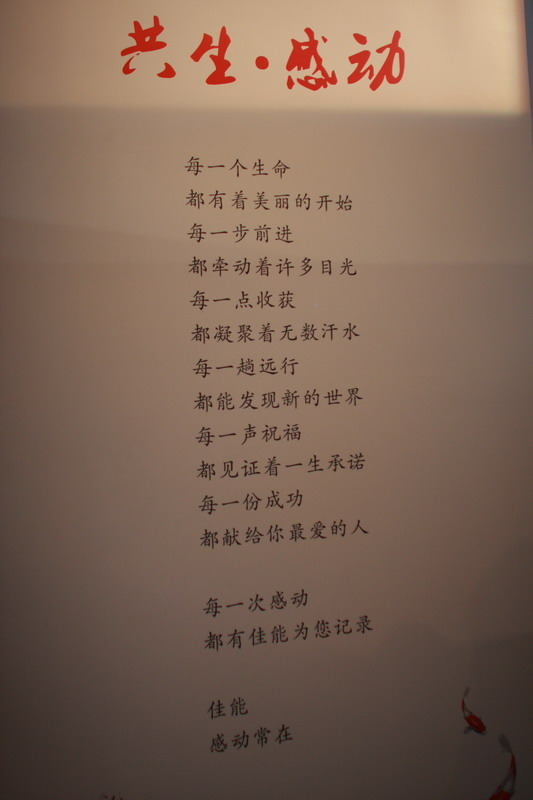 共生·感动
每一个生命
都有着美丽的开始
每一步前进
都牵动着许多目光
每一点收获
都凝聚着无数汗水
每一趟远行
都能发现新的世界
每一声祝福
都见证着一生承诺
每一份成功
都献给你最爱的人
每一次感动
都有佳能为您记录
佳能
感动常在